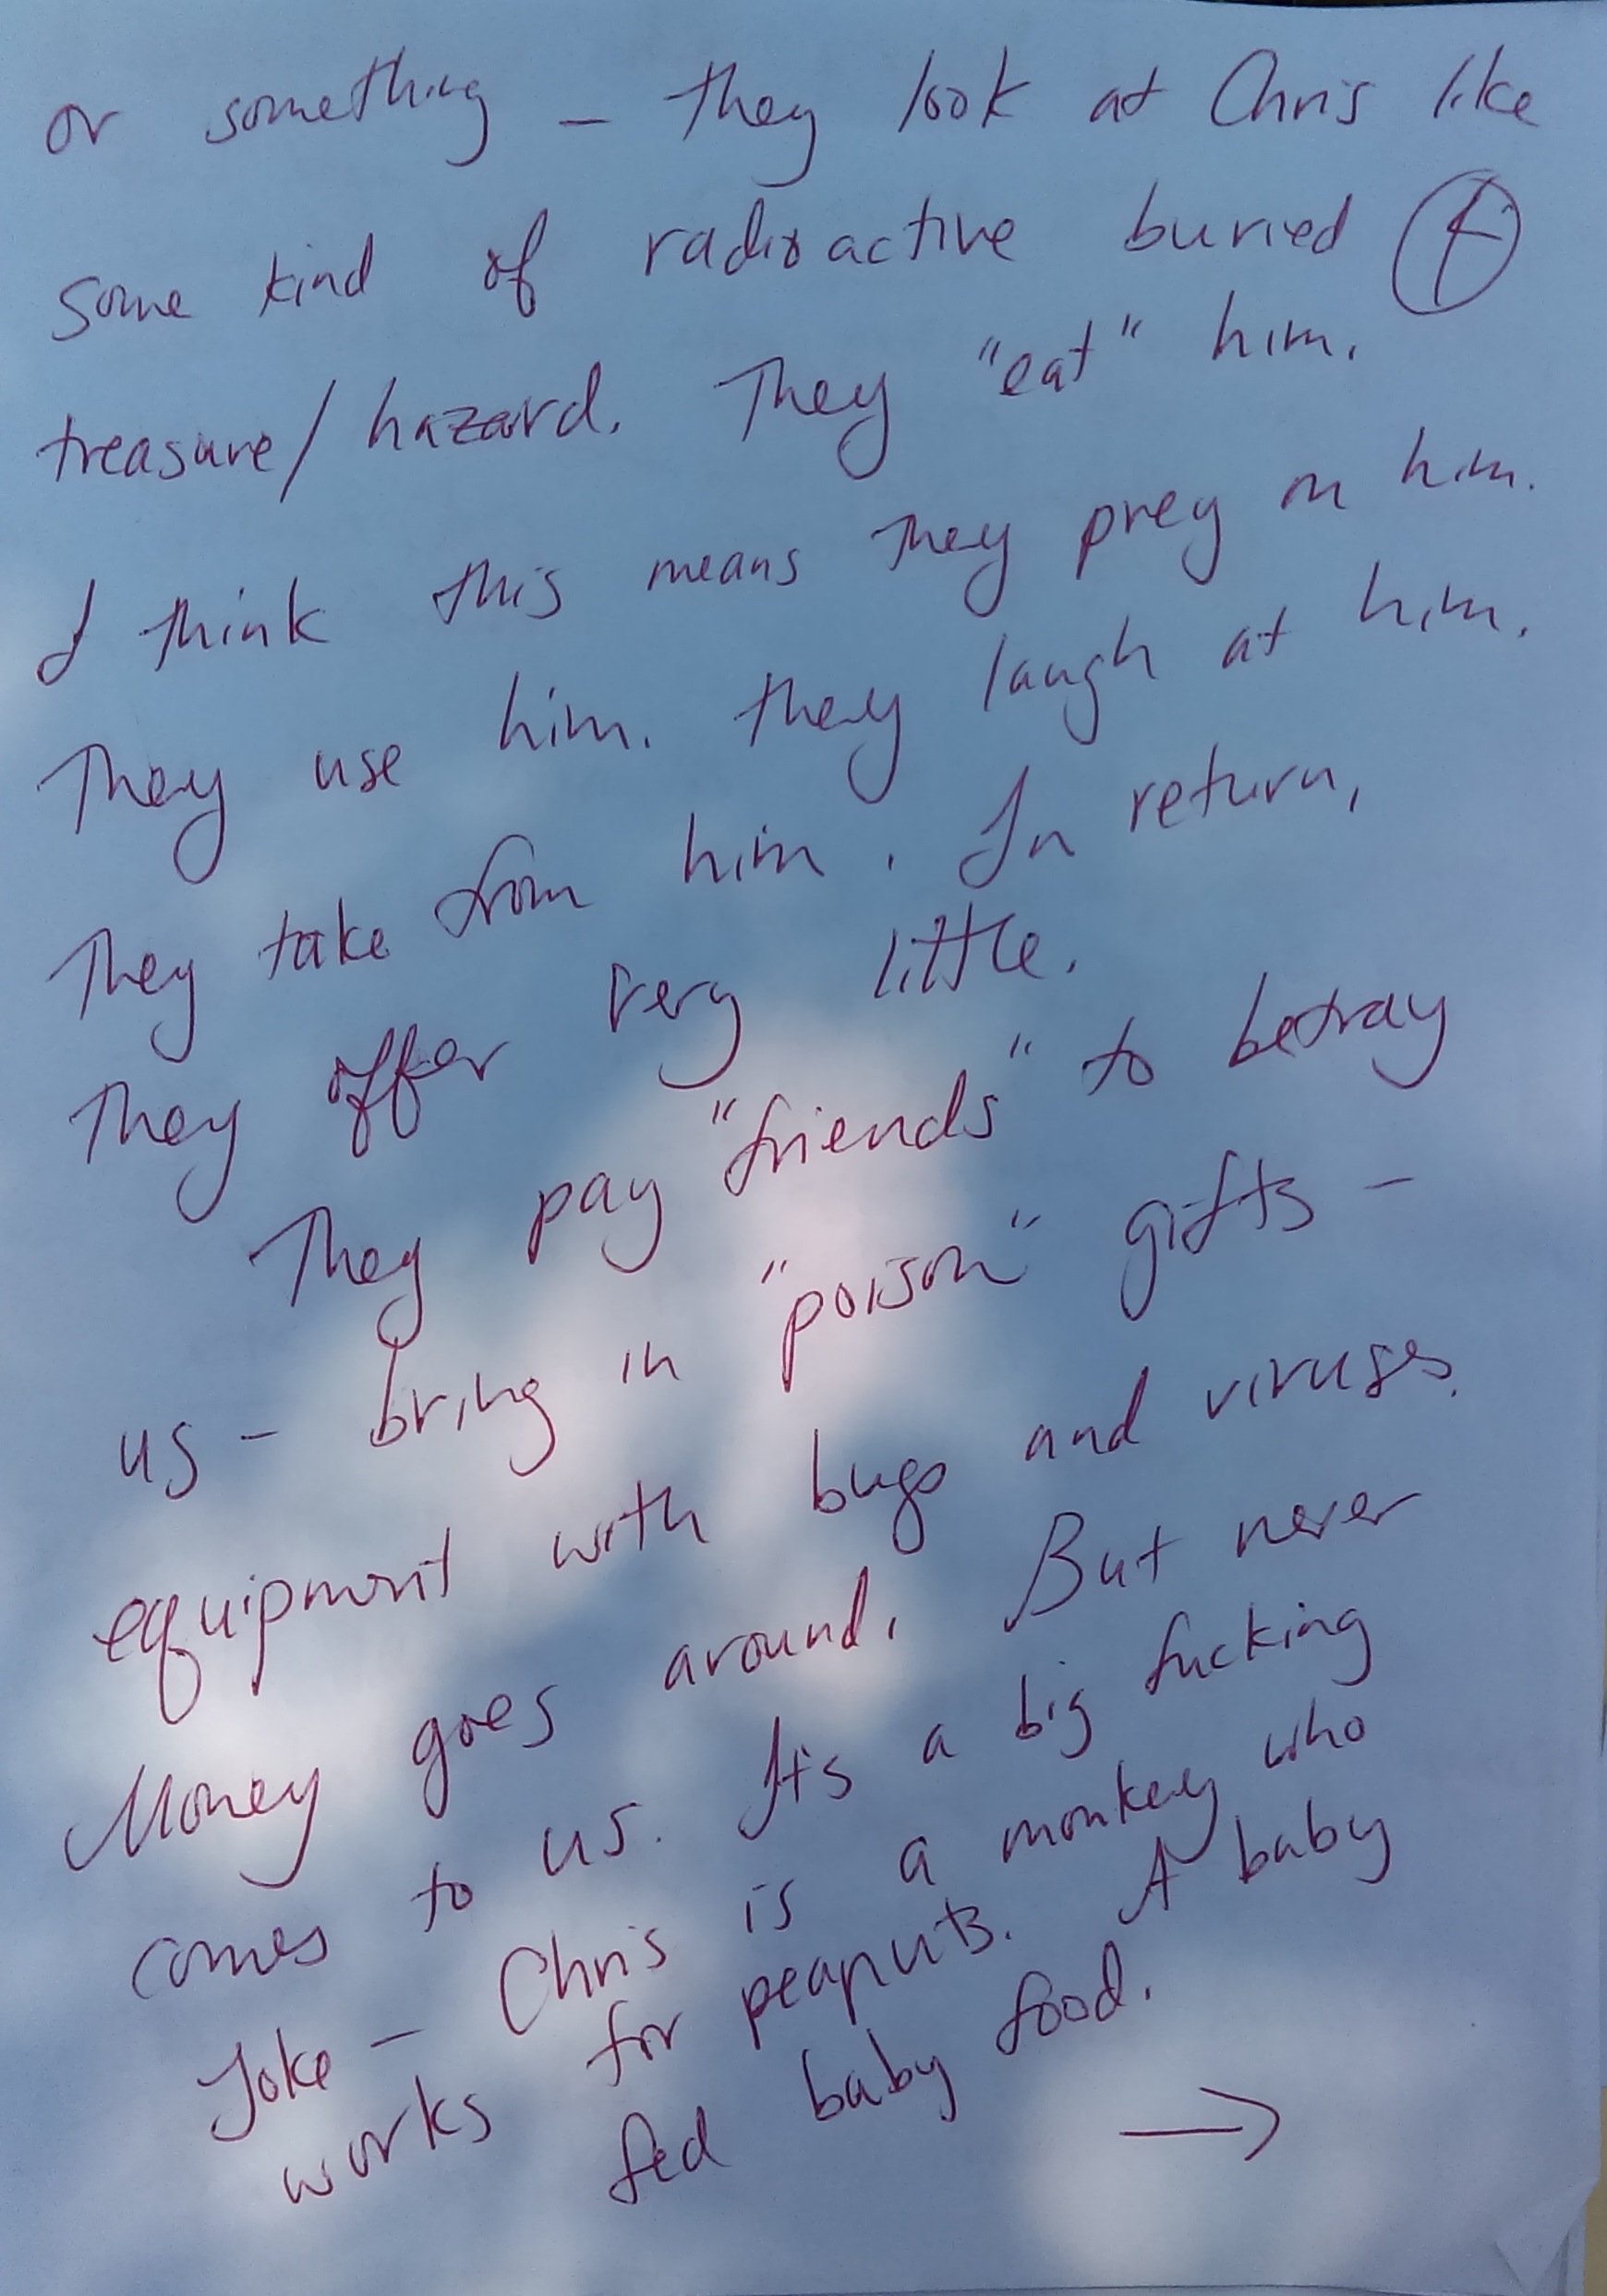 or something – they look at Chris like
some kind of radioactive buried
treasure/hazard. They "eat" him.
I think this means they prey on him.
They use him. they laugh at him.
They take from him. In return,
They offer very little.
They pay "friends" to betray
us – bring in "poison" gifts –
equipment with bugs and viruses.
Money goes around. But never
comes to us. Its a big fucking
Joke – Chris is a monkey who
works for peanuts. A baby
fed baby food.
→